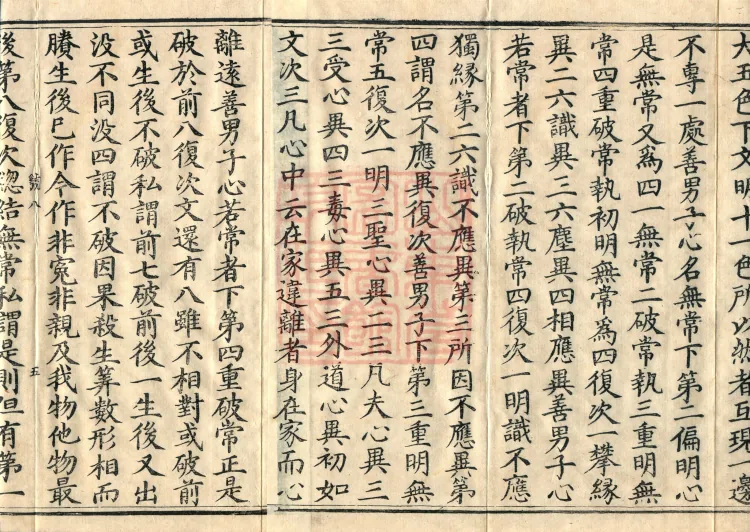 大五色下文明十一色所以彼者互現一邊
不專一處善男子心名無常下第二偏明心
是無常又爲四一無常二破常執三重明無
常四重破常執初明無常爲四復次一攀緣
異二六識異三六塵異四相應異善男子心
若常者下第二破執常四復次一明識不應
獨緣第二六識不應異第三所因不應異第
四謂名不應異復次善男子下第三重明無
常五復次一明三聖心異二三凡夫心異三
三受心異四三毒心異五三外道心異初如
文次三凡心中云在家違離者身在家而心
離遠善男子心若常者下第四重破常正是
破於前八復次文還有八雖不相對或破前
或生後不破私謂前七破前後一生後又出
没不同没四謂不破因果殺生筭數形相而
賸生後巳作今作非寃非親及我物他物最
後第八復次緫結無常私謂是則但有第一
號八
五